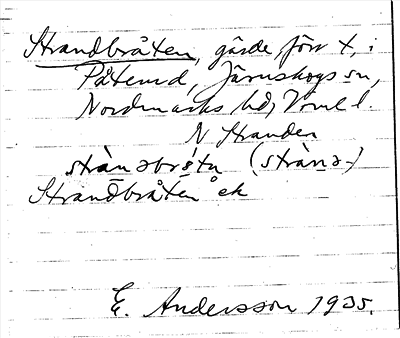 Strandbråten, gärde, förr t, i
Påterud, Järnskogs sn,
Nordmarks hd, Vrml l.
N Stranden
strànəbrɷ́tn (strànə-)
Strandbråten ek
E. Andersson 1935.